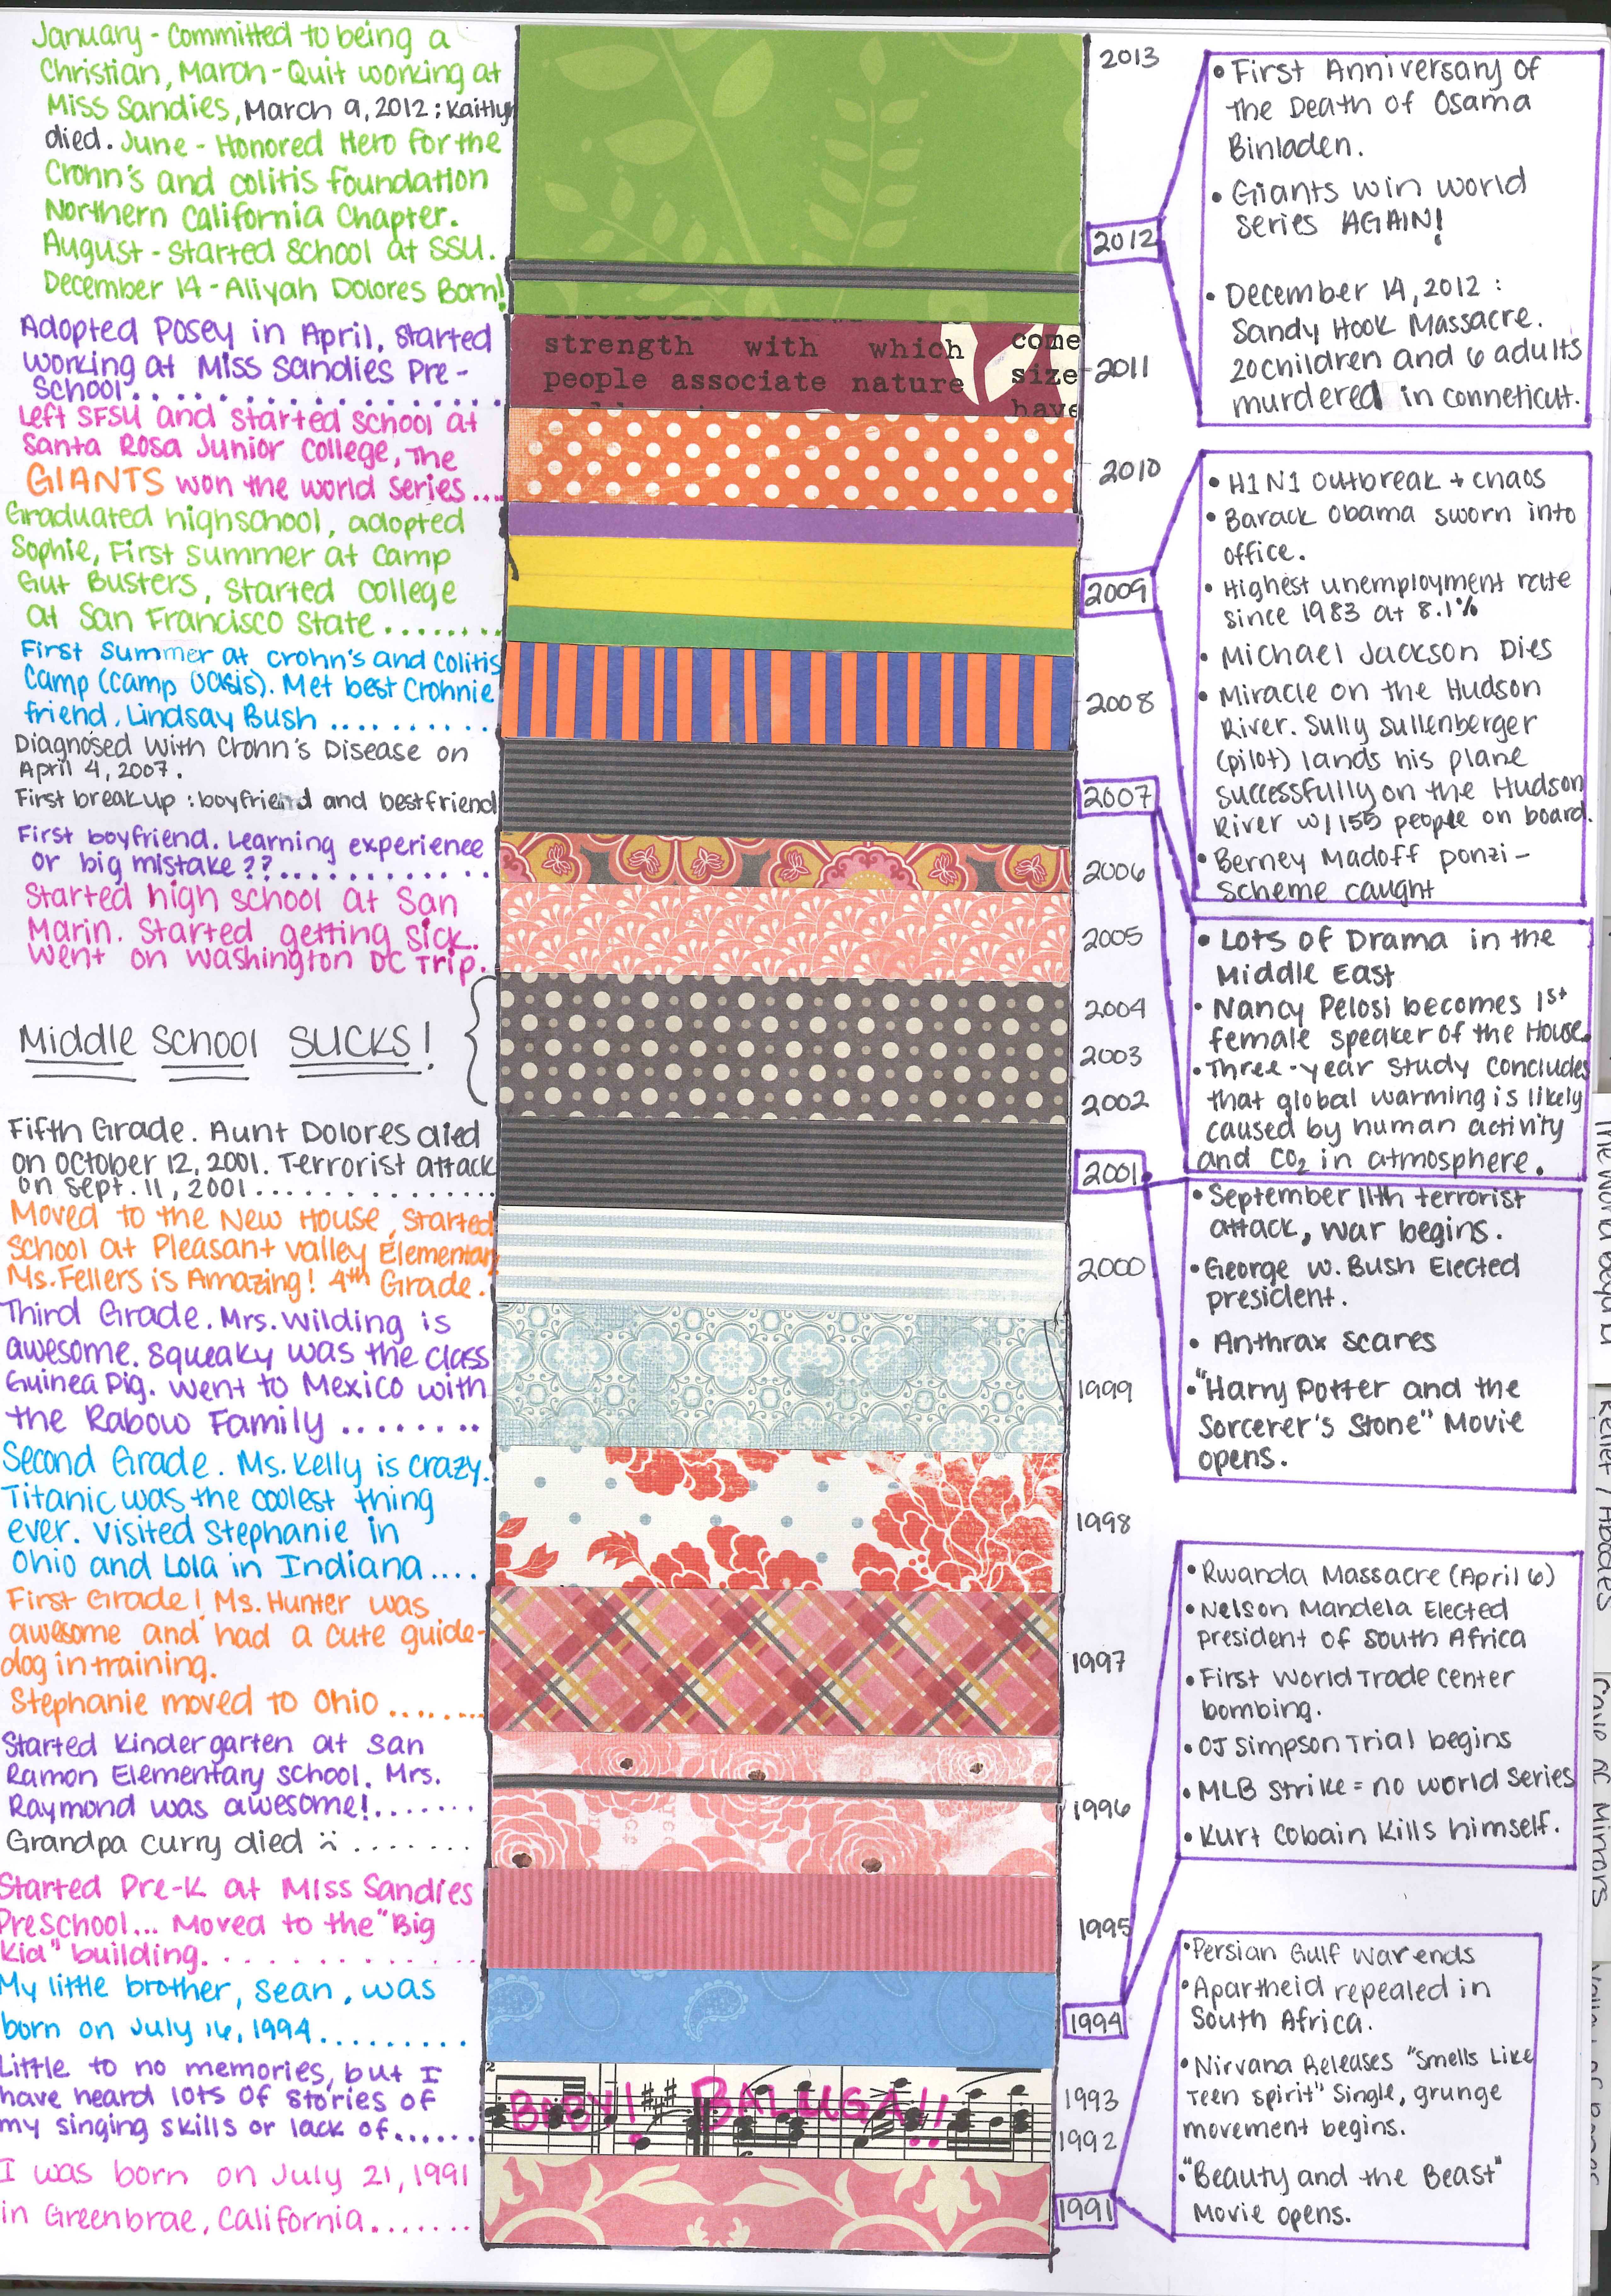 January - Committed to being a
Christian, March - Quit working at
Miss Sandies, March 9, 2012 : Kaitlyn
died. June - Honored Hero for the
Crohn's and colitis foundation
Northern California Chapter.
August - Started School at SSU.
December 14 - Aliyah Dolores Born!
Adopted Posey in April, Started
working at Miss Sandies Pre-
School..................
Left SFSU and Started school at
Santa Rosa Junior College, The
GIANTS won the world series....
Graduated highschool, adopted
Sophie, First summer at Camp
Gut Busters, Started college
at San Francisco State ........
First summer at crohn's and Colitis
Camp (Camp Oasis). Met best Crohnie
friend, Lindsay Bush ..........
Diagnosed with Crohn's Disease on
April 4, 2007.
First breakup : boyfriend and bestfriend
First boyfriend. Learning experience
or big mistake??.............
Started high school at San
Marin. Started getting sick.
Went on Washington DC Trip.
Middle School SUCKS!
Fifth Grade. Aunt Dolores died
on October 12, 2001. Terrorist attack
on Sept. 11, 2001..............
Moved to the New House, Started
School at Pleasant Valley Elementary
Ms. Fellers is Amazing! 4th Grade.
Third Grade. Mrs. Wilding is
awesome. Squeaky was the class
Guinea Pig. Went to Mexico with
the Rabow Family ........
Second Grade. Ms. Kelly is crazy.
Titanic was the coolest thing
ever. Visited Stephanie in
Ohio and Lola in Indiana....
First Grade! Ms. Hunter was
awesome and had a cute guide-
dog in training.
Stephanie moved to Ohio .......
Started Kindergarten at San
Ramon Elementary School. Mrs.
Raymond was awesome!.......
Grandpa Curry died :( .......
Started Pre-K at Miss Sandies
Preschool... Moved to the "Big
Kid" building. ............
My little brother, Sean, was
born on July 16, 1994.........
Little to no memories, but I
have heard lots of stories of
my singing skills or lack of......
I was born on July 21, 1991
in Greenbrae, California.......
strength with which
people associate nature
come
size
have
BABY! BALUGA!!
2013
2012
2011
2010
2009
2008
2007
2006
2005
2004
2003
2002
2001
2000
1999
1998
1997
1996
1995
1994
1993
1992
1991
• First Anniversary of
the Death of Osama
Binladen.
• Giants win world
series AGAIN!
• December 14, 2012 :
Sandy Hook Massacre.
20 children and 6 adults
murdered in conneticut.
• H1N1 outbreak + chaos
• Barack Obama sworn into
office.
• Highest unemployment rate
since 1983 at 8.1%
• Michael Jackson Dies
• Miracle on the Hudson
River. Sully Sullenberger
(pilot) lands his plane
successfully on the Hudson
River w/155 people on board.
• Berney Madoff ponzi-
scheme caught
• Lots of Drama in the
Middle East
• Nancy Pelosi becomes 1st
female speaker of the House.
• Three-year study concludes
that global warming is likely
caused by human activity
and CO2 in atmosphere.
• September 11th terrorist
attack, war begins.
• George W. Bush Elected
president.
• Anthrax scares
• "Harry Potter and the
Sorcerer's Stone" Movie
opens.
• Rwanda Massacre (April 6)
• Nelson Mandela Elected
president of South Africa
• First World Trade Center
bombing.
• OJ Simpson Trial begins
• MLB Strike = no world series
• Kurt Cobain kills himself.
• Persian Gulf War ends
• Apartheid repealed in
South Africa.
• Nirvana Releases "Smells Like
Teen Spirit" Single, grunge
movement begins.
• "Beauty and the Beast"
Movie opens.